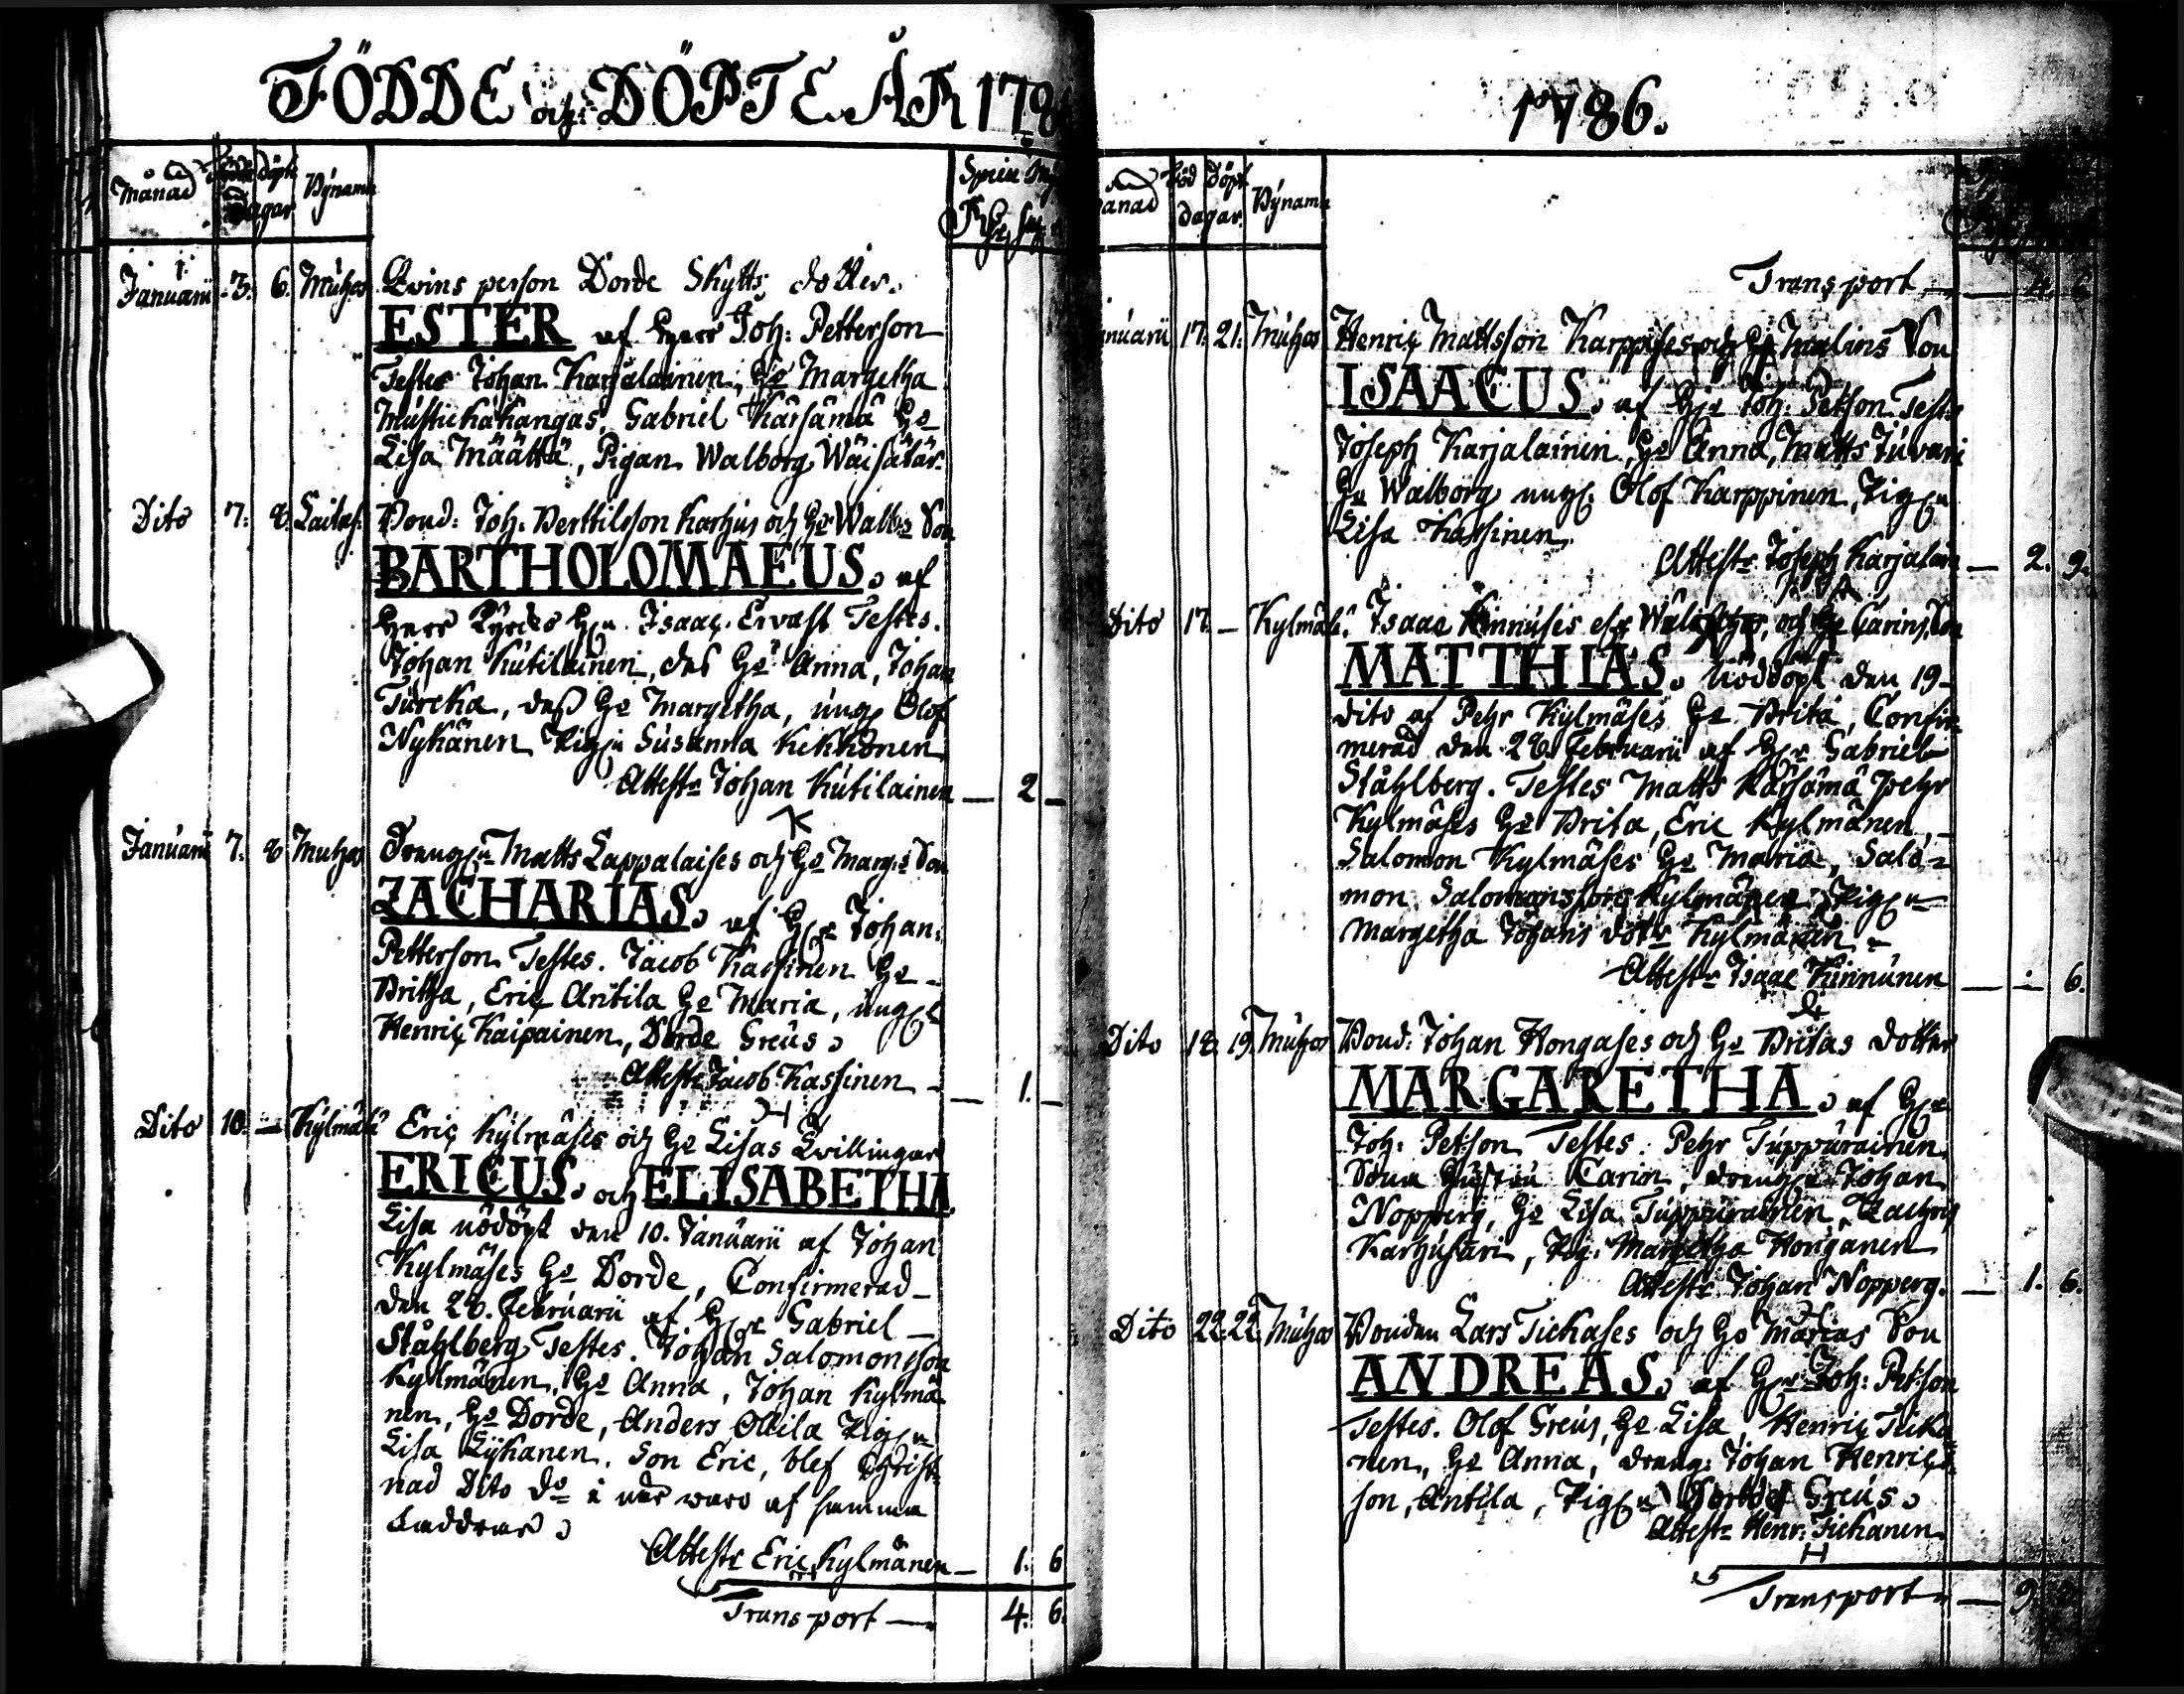 FÖDDE och DÖPTE ÅR 178
Månad Född döpt Dagar Bÿnamn
Januarii 3. 6. Muhos Qvins person Dorde Skytts dotter.
ESTER af Herr Joh: Petterson
Testes Johan Karjalainen, Ho Margetha
Mustickakangas, Gabriel Kärsämä Ho
Lisa Määttä, Pigan Walborg Wäisätär.
Dito 7. 8. Laitas. Bond: Joh. Berttilsson Karhus och Ho Walb:s Son
BARTHOLOMAEUS. af
Herr Isaac Ervast Testes.
Johan Kutilainen, des Ho Anna, Johan
Turcka, dess Ho Margetha, ung Olof
Nykänen Pig:n Susanna Kikkonen
Attestr Johan Kutilainen — 2 —
Januarii 7. 8 Muhos Dreng:n Matts Lappalaises och Ho Marg:s Son
ZACHARIAS. af H:r Johan:
Petterson Testes. Jacob Kassinen Ho
Britha, Eric Antila Ho Maria, ung:l
Henric Kaipainen, Dorde Greus.
Attestr Jacob Kassinen — 1. —
Dito 10. — Kylmäl: Eric Kylmäses och Ho Lisas Tvillingar
ERICUS. och ELISABETHA.
Lisa nödöpt den 10. Januarii af Johan
Kylmäses Ho Dorde, Confirmerad
den 28. Februarii af H:r Gabriel
Ståhlberg Testes. Johan Salomonsson
Kylmänen, Ho Anna, Johan Kylmä
nen, Ho Dorde, Anders Ollila Pig:n
Lisa Lÿkanen. Son Eric, blef Christ
nad Dito do i när waro af samma
faddrar.
Attestr Eric Kylmänen — 1. 6
Transport — 4. 6.
1786.
Månad Född Döpt Dagar. Bÿnamn
Transport — 4. 6
Januarii 17. 21. Muhos Henric Mattsson Karppises och Ho Malins Son
ISAACUS. af H:r Joh: Petson Testes
Joseph Karjalainen, Ho Anna, Matts Juvani
Ho Walborg ung: Olof Karppinen, Pig:n
Lisa Kassinen
Attestr Joseph Karjalain — 2. 9.
Dito 17. — Kylmäl: Isaac Kinnuses och Ho Carins Son
MATTHIAS. Nöddöpt den 19
dito af Pehr Kylmäses Ho Brita, Confir
merad den 28. Februarii af H:r Gabriel
Ståhlberg. Testes Matts Kärsämä Pehr
Kylmäses Ho Brita, Eric Kylmänen,
Salomon Kylmäses Ho Maria, Salo=
mon Salomonsson Kylmänen, Pig:n
Margetha Johans dotr Kylmänen
Attestr Isaac Kinnunen — - 6.
Dito 18. 19. Muhos Bond: Johan Hongases och Ho Britas dotter
MARGARETHA. af H:r
Joh: Petson Testes: Pehr Tuppurainen
Sona Hustru Carin, dreng:n Johan
Nopperg, Ho Lisa Tuppurainen, Zachris
Karhusari, Pig: Margetha Honganen
Attestr Johan Nopperg. — 1. 6.
Dito 22. 22. Muhos Bonden Lars Tickases och Ho Marias Son
ANDREAS. af H:r Joh: Petson
Testes. Olof Greus, Ho Lisa, Henric Ticka
nen, Ho Anna, dreng: Johan Henrics
son, Antila, Pig:n Dorde Greus.
Attestr Henr: Tickanen
Transport — 9.